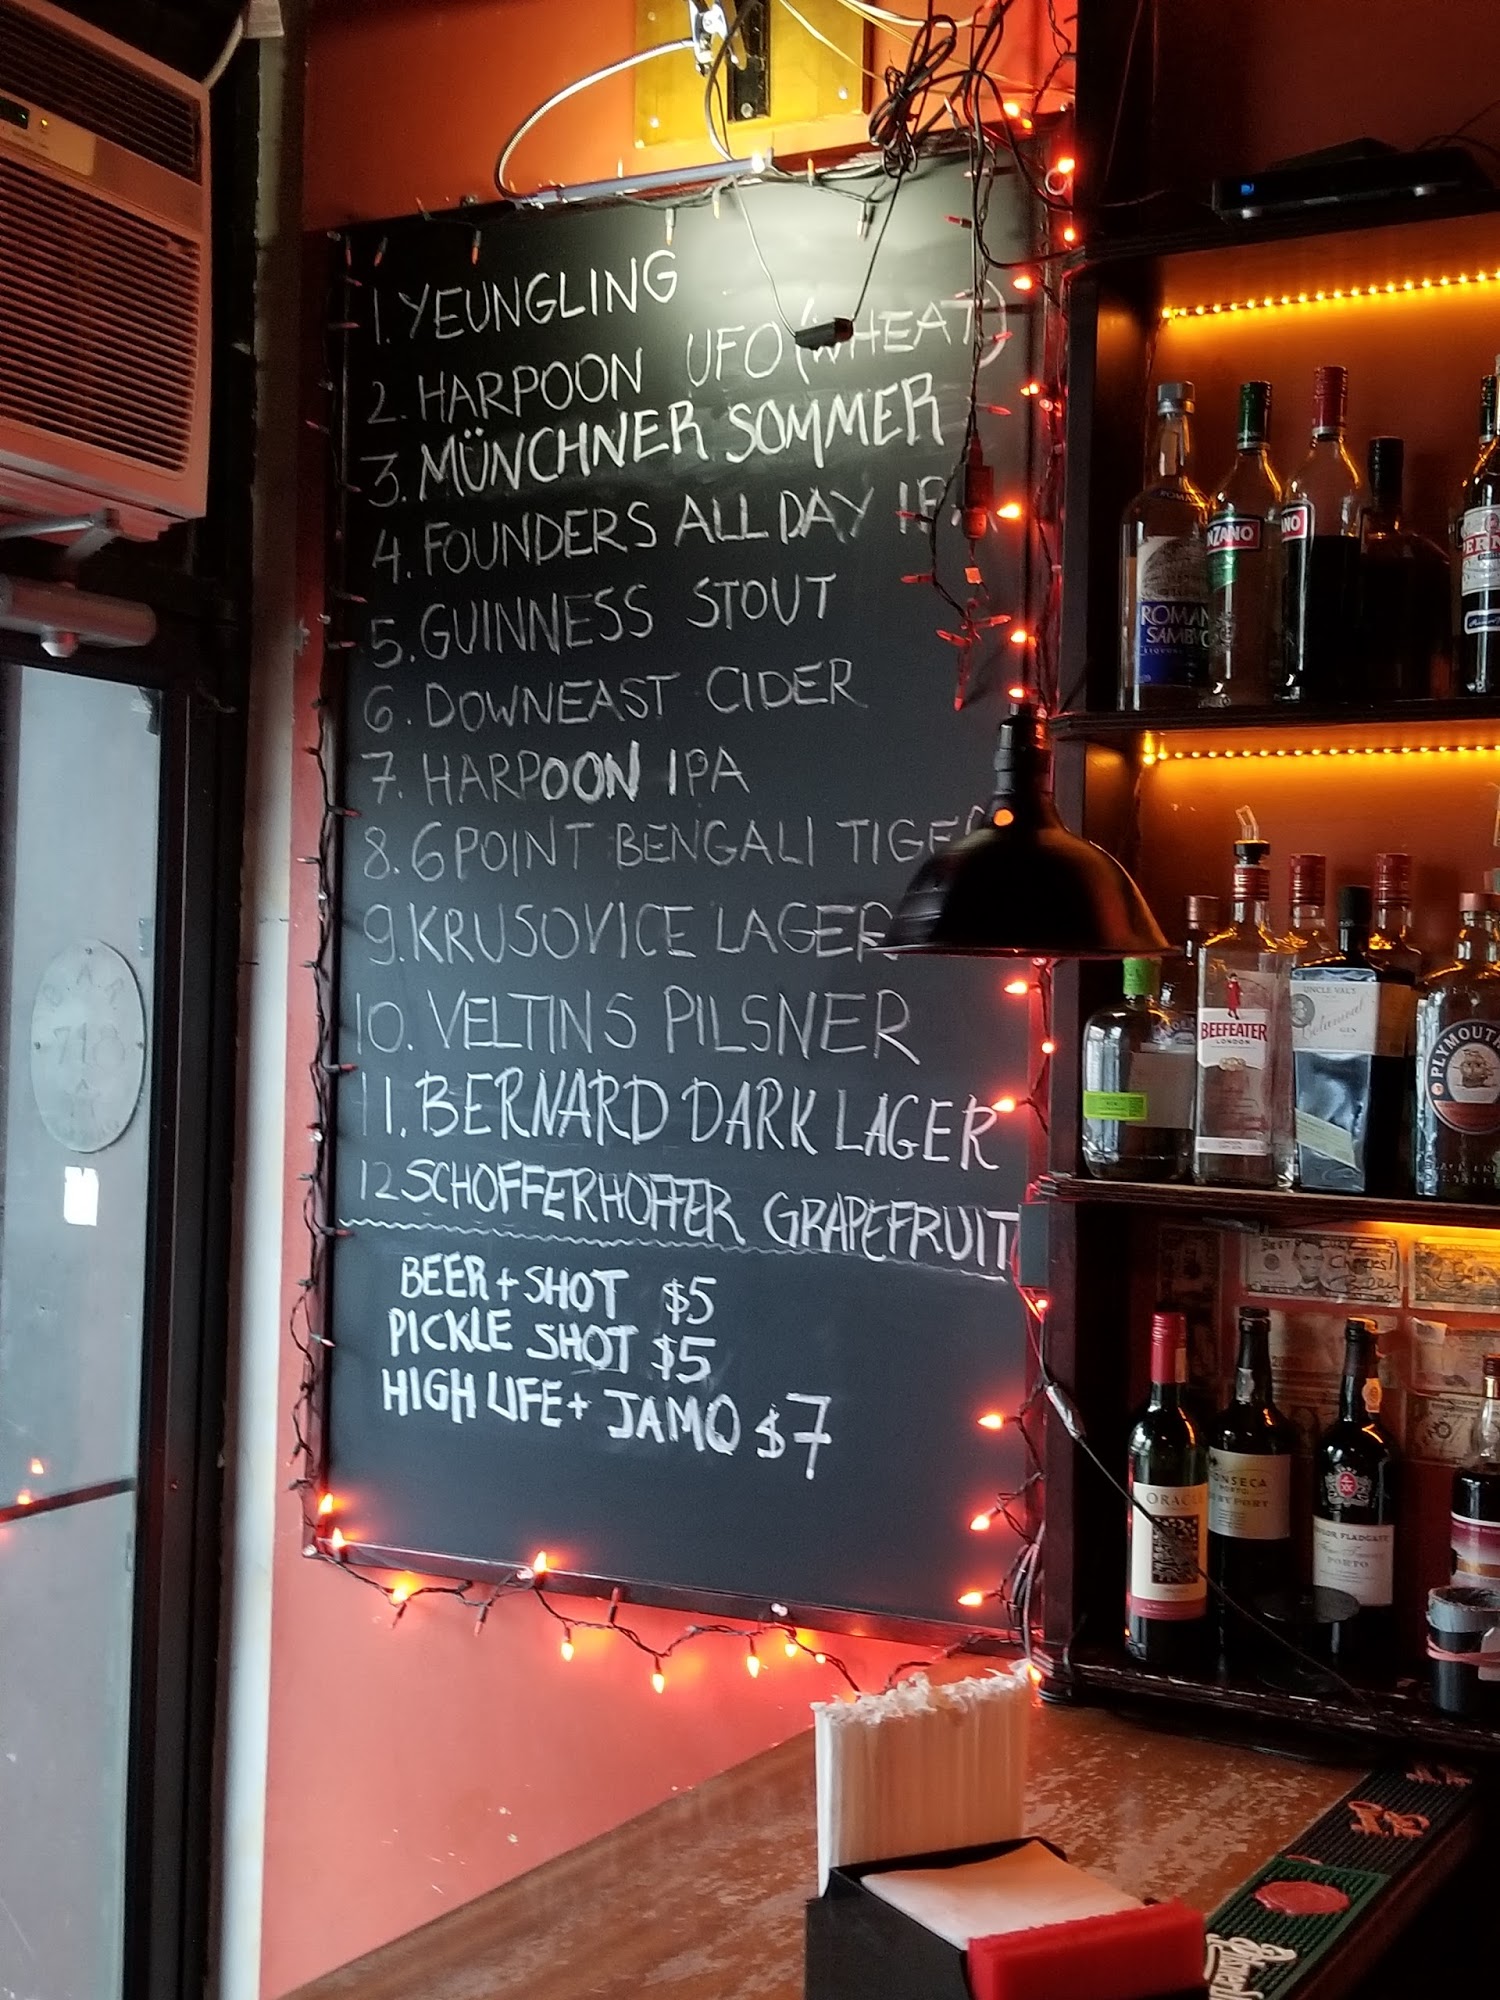 1. YEUNGLING
2. HARPOON UFO (WHEAT)
3. MÜNCHNER SOMMER
4. FOUNDERS ALL DAY IPA
5. GUINNESS STOUT
6. DOWNEAST CIDER
7. HARPOON IPA
8. 6POINT BENGALI TIGER
9. KRUSOVICE LAGER
10. VELTINS PILSNER
11. BERNARD DARK LAGER
12 SCHOFFERHOFFER GRAPEFRUIT
BEER + SHOT $5
PICKLE SHOT $5
HIGH LIFE + JAMO $7
BAR
718
ROMAN
SAMB
NZANO
NO
BEEFEATER
LONDON
UNCLE VAL'S
Botanical
GIN
PLYMOUTH
BEST
Cheers!
ORACLE
FONSECA
PORTO
FLADGATE
PORTO